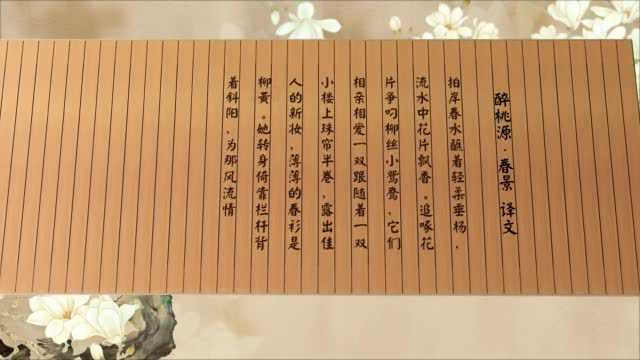 醉桃源·春景 译文
拍岸春水蘸着轻柔垂杨，
流水中花片飘香。追啄花
片争叼柳丝小鸳鸯，它们
相亲相爱一双跟随着一双
小楼上珠帘半卷，露出佳
人的新妆，薄薄的春衫是
柳黄。她转身倚靠栏杆背
着斜阳、为那风流情